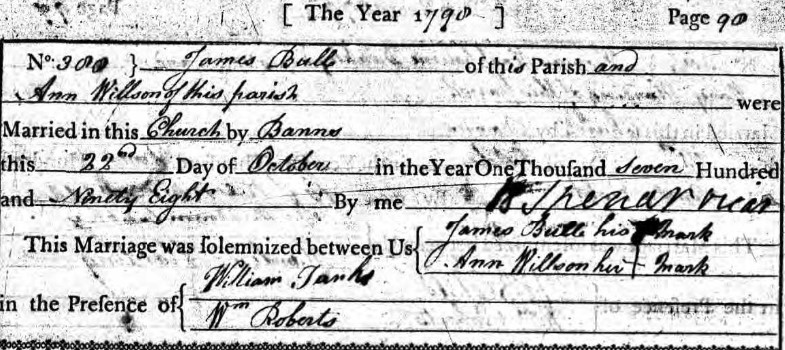 [ The Year 1798 ] Page 98
No: 388 } James Bull of this Parish and
Ann Willson of this parish were
Married in this Church by Banns
this 22nd Day of October in the Year One Thousand seven Hundred
and Ninety Eight By me Vicar
This Marriage was solemnized between Us { James Bull his mark
Ann Willson her + mark
in the Presence of { William Tanks
Wm Roberts